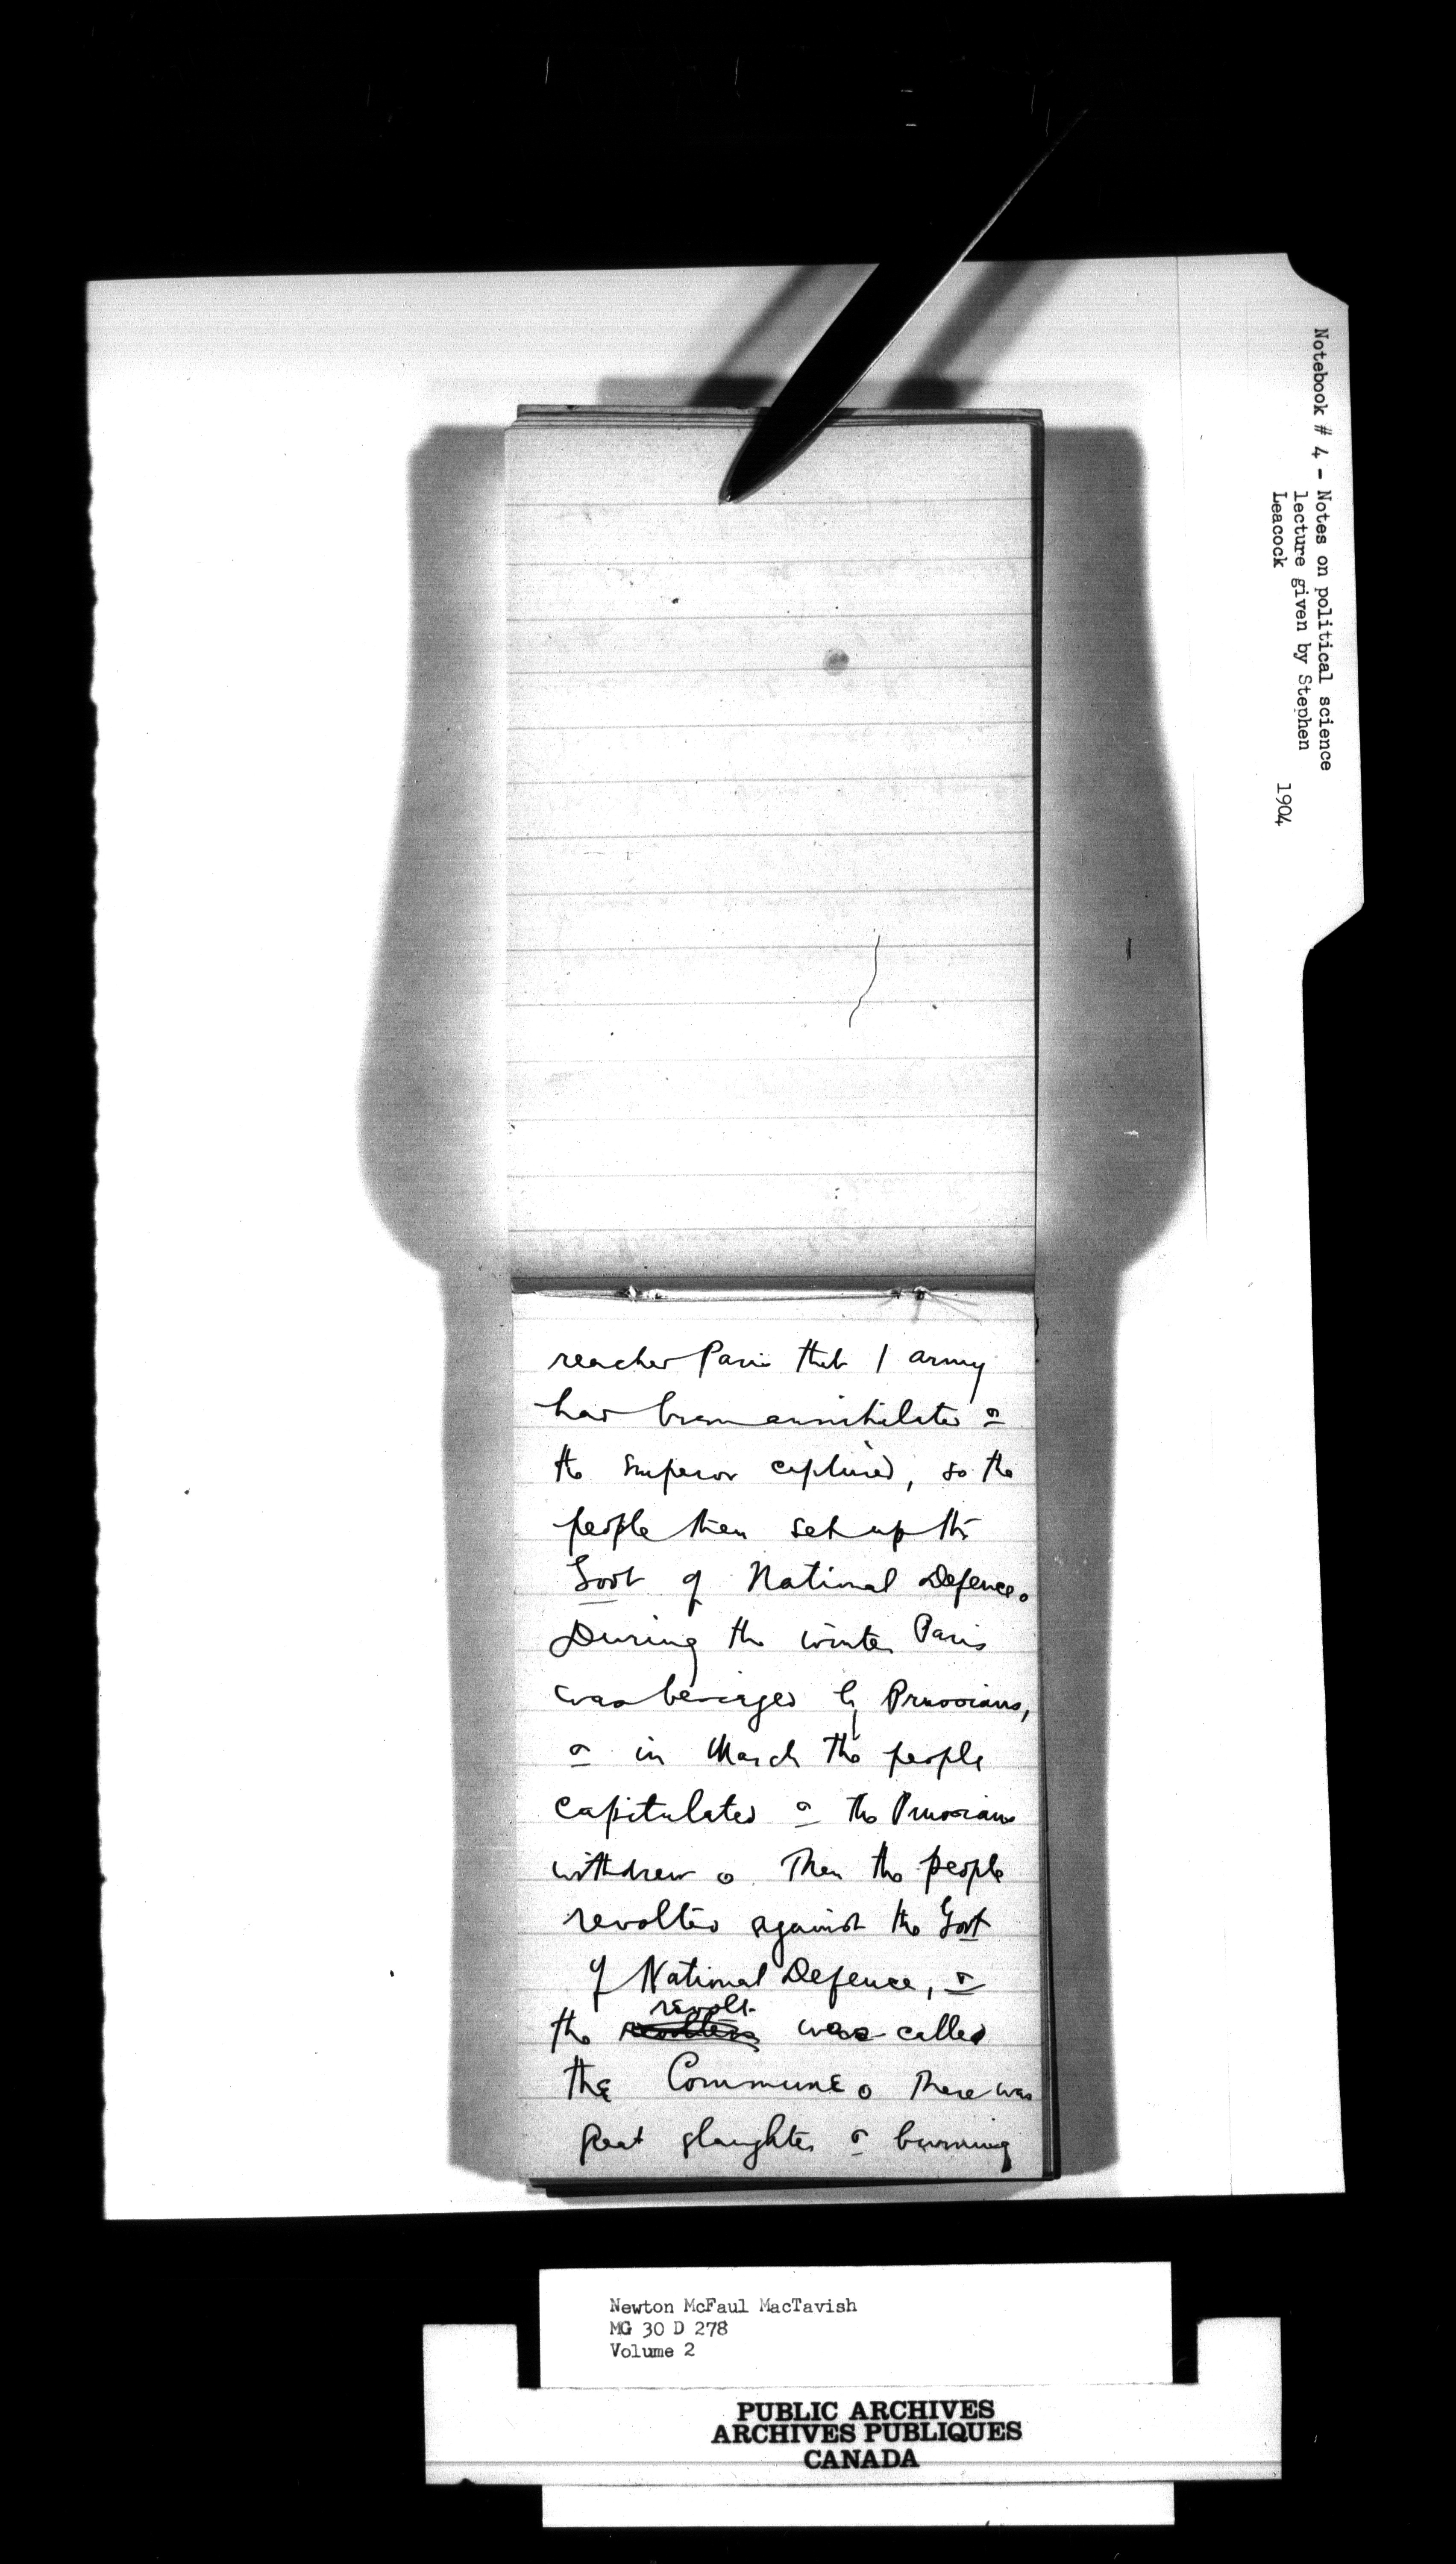 Notebook # 4 - Notes on political science
lecture given by Stephen
Leacock 1904
reached Paris that 1 army
had been annihilated &
the Emperor captured, so the
people then set up the
Govt of National Defence.
During the winter Paris
was besieged by Prussians,
& in March the people
capitulated & the Prussians
withdrew. Then the people
revolted against the Govt
of National Defence, &
revolt
the was called
the Commune. There was
great slaughter & burning
Newton McFaul MacTavish
MG 30 D 278
Volume 2
PUBLIC ARCHIVES
ARCHIVES PUBLIQUES
CANADA